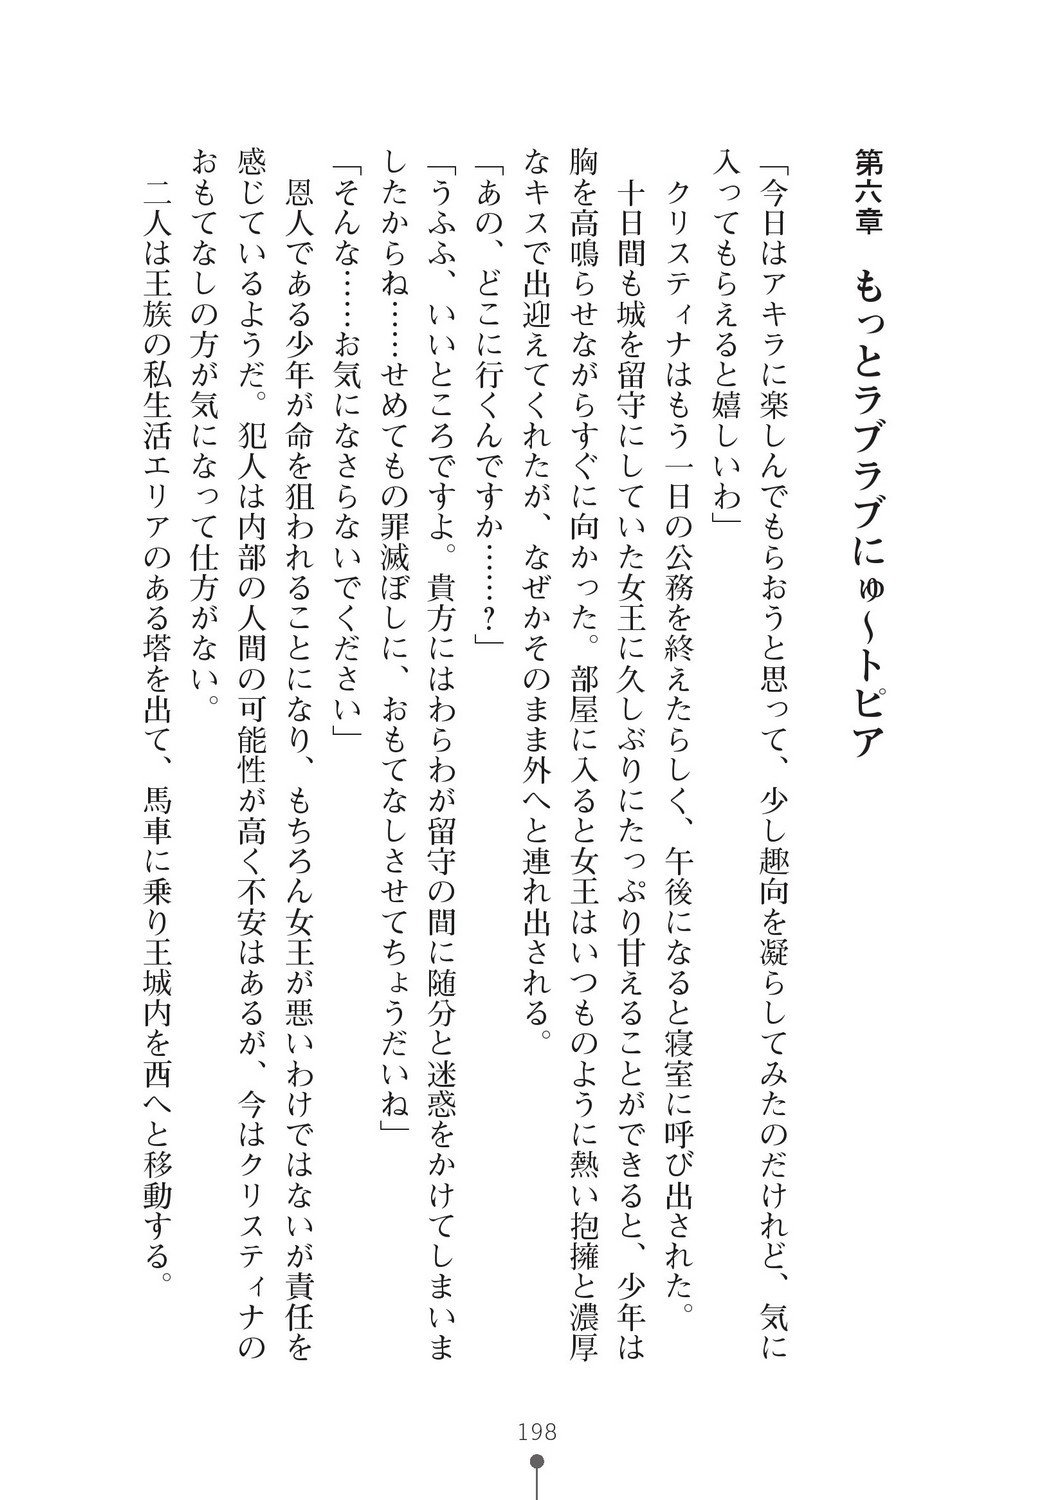 第六章　もっとラブラブにゅ～トピア
「今日はアキラに楽しんでもらおうと思って、少し趣向を凝らしてみたのだけれど、気に
入ってもらえると嬉しいわ」
クリスティナはもう一日の公務を終えたらしく、午後になると寝室に呼び出された。
十日間も城を留守にしていた女王に久しぶりにたっぷり甘えることができると、少年は
胸を高鳴らせながらすぐに向かった。部屋に入ると女王はいつものように熱い抱擁と濃厚
なキスで出迎えてくれたが、なぜかそのまま外へと連れ出される。
「あの、どこに行くんですか……？」
「うふふ、いいところですよ。貴方にはわらわが留守の間に随分と迷惑をかけてしまいま
したからね……せめてもの罪滅ぼしに、おもてなしさせてちょうだいね」
「そんな……お気になさらないでください」
恩人である少年が命を狙われることになり、もちろん女王が悪いわけではないが責任を
感じているようだ。犯人は内部の人間の可能性が高く不安はあるが、今はクリスティナの
おもてなしの方が気になって仕方がない。
二人は王族の私生活エリアのある塔を出て、馬車に乗り王城内を西へと移動する。
198